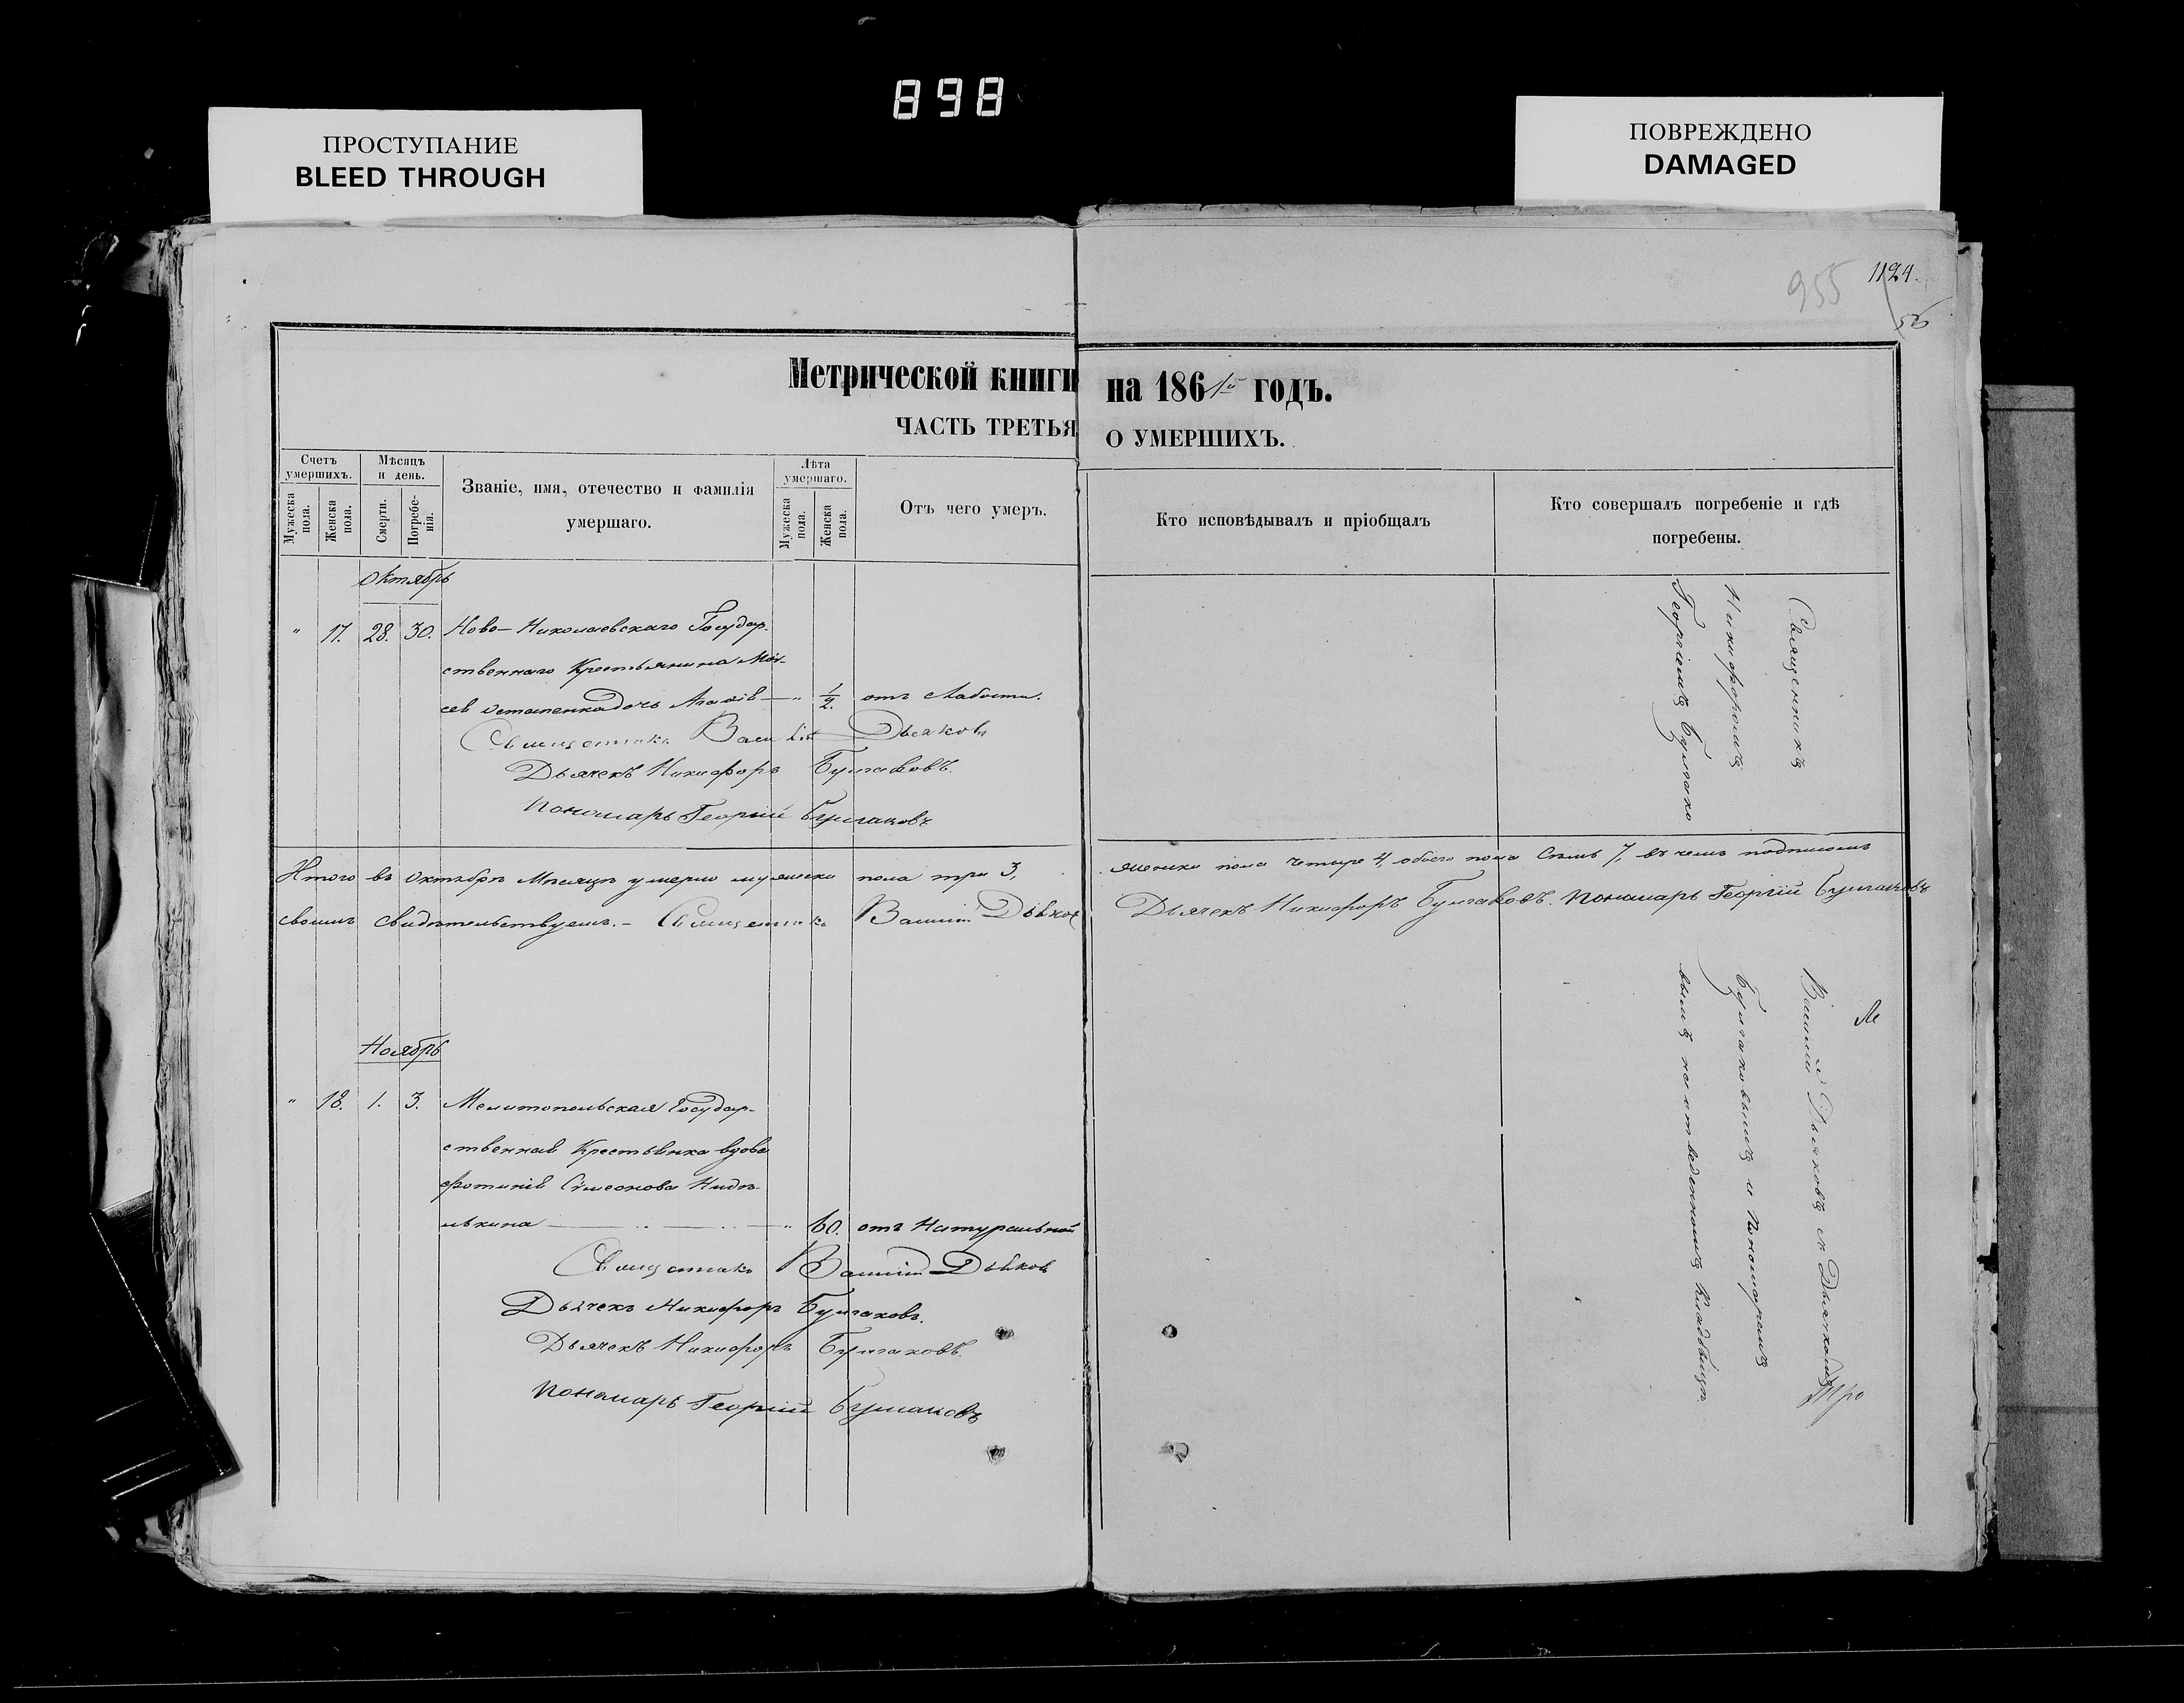 898
ПРОСТУПАНИЕ
BLEED THROUGH
ПОВРЕЖДЕНО
DAMAGED
955
1124.
56
Метрической книги на 1861го годъ.
ЧАСТЬ ТРЕТЬЯ О УМЕРШИХЪ.
Счетъ умершихъ.
Мужеска пола.
Женска пола.
Мѣсяцъ и день.
Смерти.
Погребенія.
Званіе, имя, отечество и фамилія умершаго.
Лѣта умершаго.
Мужеска пола.
Женска пола.
Отъ чего умеръ.
Кто исповѣдывалъ и пріобщалъ
Кто совершалъ погребеніе и гдѣ погребены.
Октябрь
" 17. 28. 30. Ново-Николаевскаго Государ-
ственнаго Крестьянина Мои-
сея Остапенка дочь Агафія — " 1/2. отъ слабости.
Священникъ Василій Дьяковъ
Дьячекъ Никифоръ Булгаковъ.
Пономарь Георгій Булгаковъ
Итого въ Октябрѣ Мѣсяцѣ умерло мужеска пола три 3, женска пола четыре 4, обоего пола Семь 7, въ чемъ подписомъ
своимъ свидѣтельствуемъ.- Священникъ Василій Дьяковъ Дьячекъ Никифоръ Булгаковъ. Пономарь Георгій Булгаковъ
Ноябрь
" 18. 1. 3. Мелитопольская Государ-
ственная Крестьянка вдова
Фотинія Симеонова Недѣ-
лькина — " 60. отъ Натуральной
Священникъ Василій Дьяковъ
Дьячекъ Никифоръ Булгаковъ.
Дьячекъ Никифоръ Булгаковъ.
Пономарь Георгій Булгаковъ
Священникъ Василій Дьяковъ съ Дьячкомъ
Никифоромъ Булгаковымъ и Пономаремъ
Георгіемъ Булгако вымъ на отведенномъ Кладбищѣ.